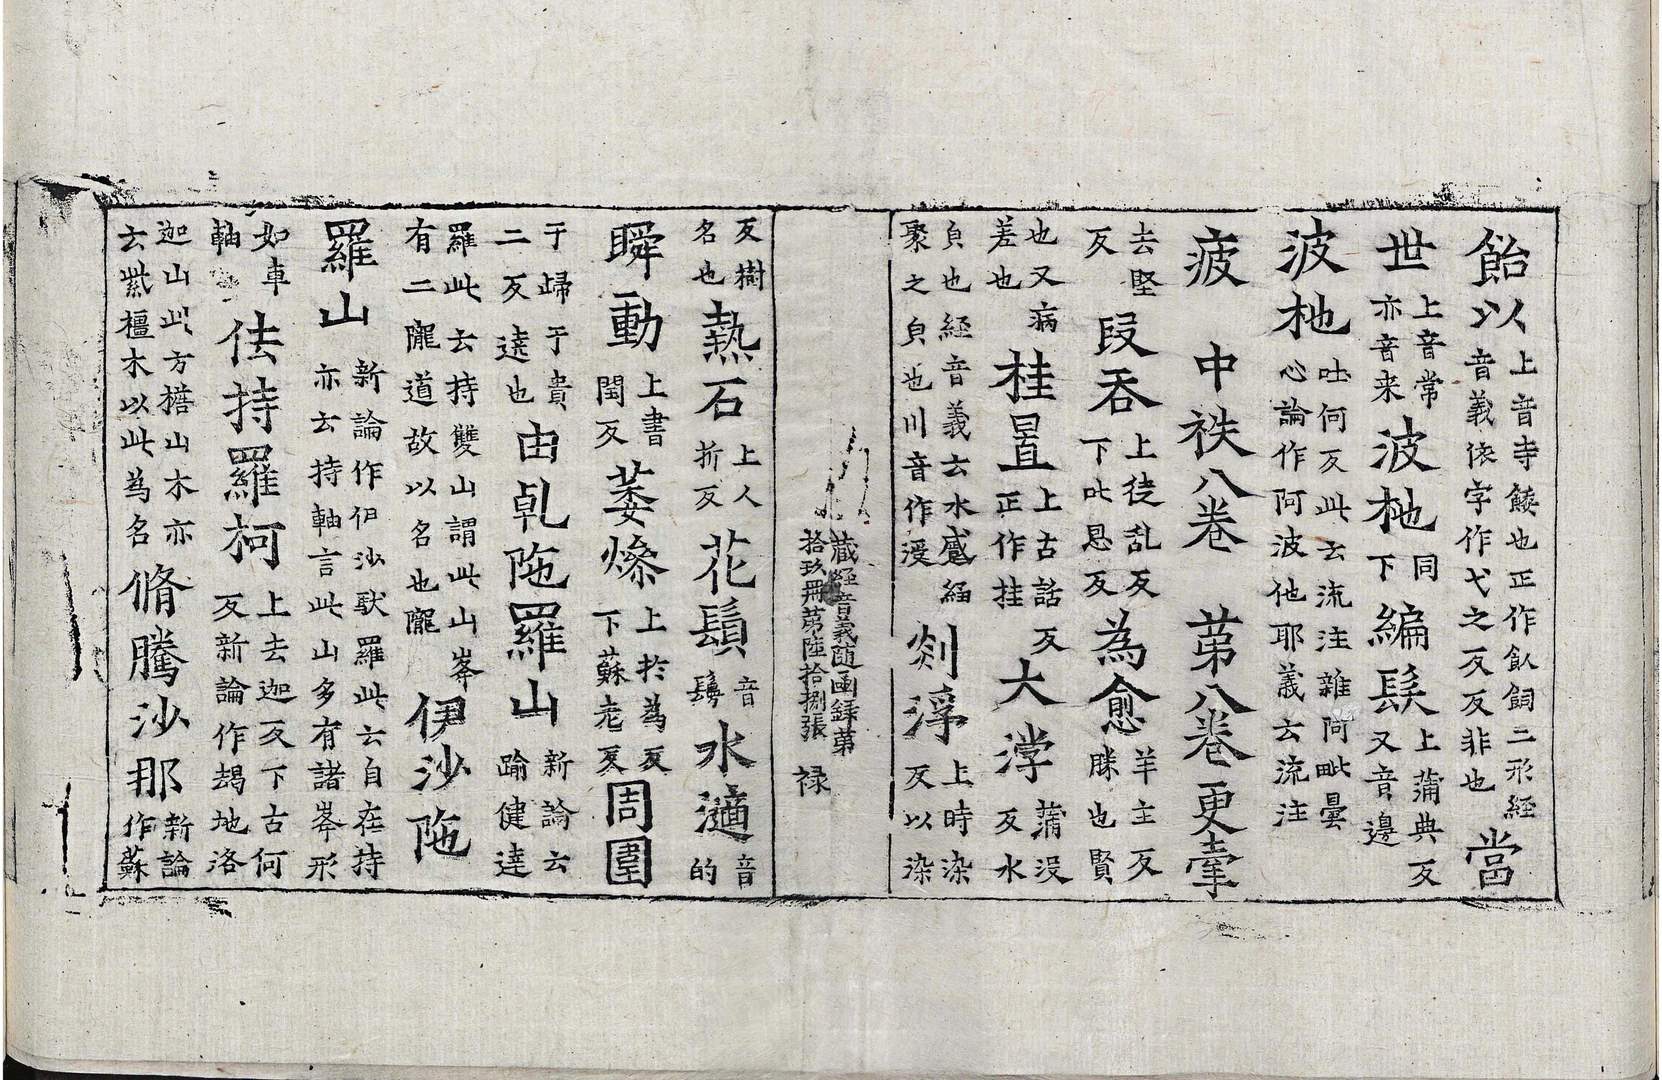 飴以上音寺餧也正作飤飼二形経音義依字作弋之反反非也當
世上音常亦音来波杝同下編髮上蒲典反又音邊
波杝吐何反此云流注雜阿毗曇心論作阿波他耶義云流注
疲 中袟八卷 第八卷更牽
去堅反段吞上徒乱反下吐恩反為愈羊主反勝也賢
也又病差也挂罣上古話反正作挂大浡蒲没反水
皃也経音義云水盛経聚之皃也川音作浸剡浮上時染反以染
藏経音義随函録第拾玖冊第陸拾捌張 禄
反樹名也熱石上人折反花鬚音鬚水滴音的
瞬動上書閏反萎燥上於為反下蘇老反周圍
于歸于貴二反遶也由乹陁羅山新論云踰健達
羅此云持雙山謂此山峯有二隴道故以名也隴伊沙陁
羅山新論作伊沙馱羅此云自在持亦云持軸言此山多有諸峯形
如車軸佉持羅柯上去迦反下古何反新論作朅地洛
迦山此方檐山木亦云紫橿木以此為名脩騰沙那新論作蘇